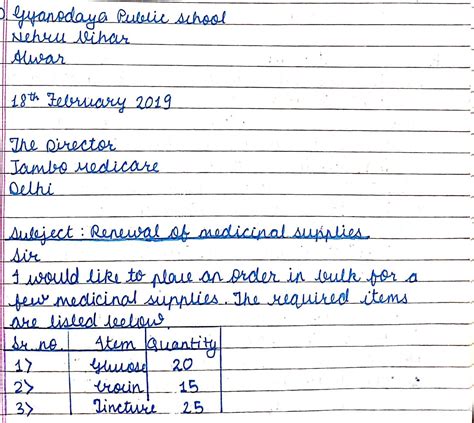 Gyanodaya Public school
Nehru Vihar
Alwar
18th February 2019
The Director
Jambo Medicare
Delhi
Subject : Renewal of medicinal supplies
Sir
I would like to place an order in bulk for a
few medicinal supplies. The required items
are listed below.
Sr. no. Item Quantity
1> Glucose 20
2> Crocin 15
3> Tincture 25